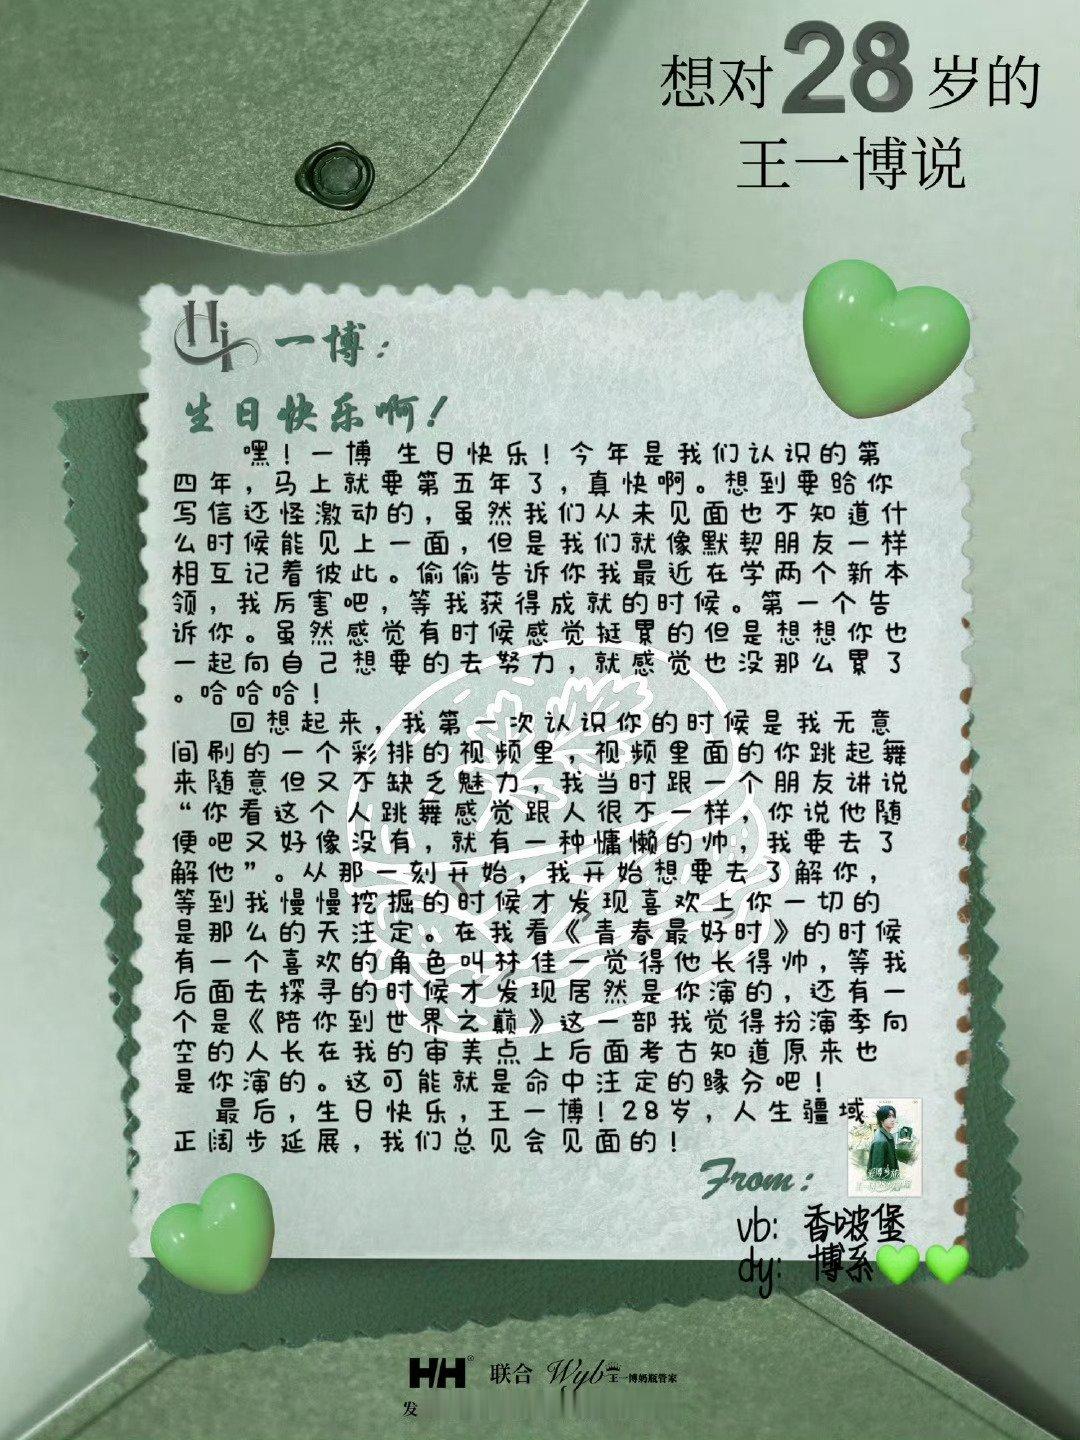 想对28岁的
王一博说
Hi 一博：
生日快乐啊！
嘿！一博 生日快乐！今年是我们认识的第
四年，马上就要第五年了，真快啊。想到要给你
写信还怪激动的，虽然我们从未见面也不知道什
么时候能见上一面，但是我们就像默契朋友一样
相互记着彼此。偷偷告诉你我最近在学两个新本
领，我厉害吧，等我获得成就的时候。第一个告
诉你。虽然感觉有时候感觉挺累的但是想想你也
一起向自己想要的去努力，就感觉也没那么累了
。哈哈哈！
回想起来，我第一次认识你的时候是我无意
间刷的一个彩排的视频里，视频里面的你跳起舞
来随意但又不缺乏魅力，我当时跟一个朋友讲说
“你看这个人跳舞感觉跟人很不一样，你说他随
便吧又好像没有，就有一种慵懒的帅，我要去了
解他”。从那一刻开始，我开始想要去了解你，
等到我慢慢挖掘的时候才发现喜欢上你一切的
是那么的天注定。在我看《青春最好时》的时候
有一个喜欢的角色叫林佳一觉得他长得帅，等我
后面去探寻的时候才发现居然是你演的，还有一
个是《陪你到世界之巅》这一部我觉得扮演季向
空的人长在我的审美点上后面考古知道原来也
是你演的。这可能就是命中注定的缘分吧！
最后，生日快乐，王一博！28岁，人生疆域
正阔步延展，我们总见会见面的！
From：
vb: 香啵堡
dy: 博系💚💚
HH® 联合 Wyb王一博奶瓶管家
发